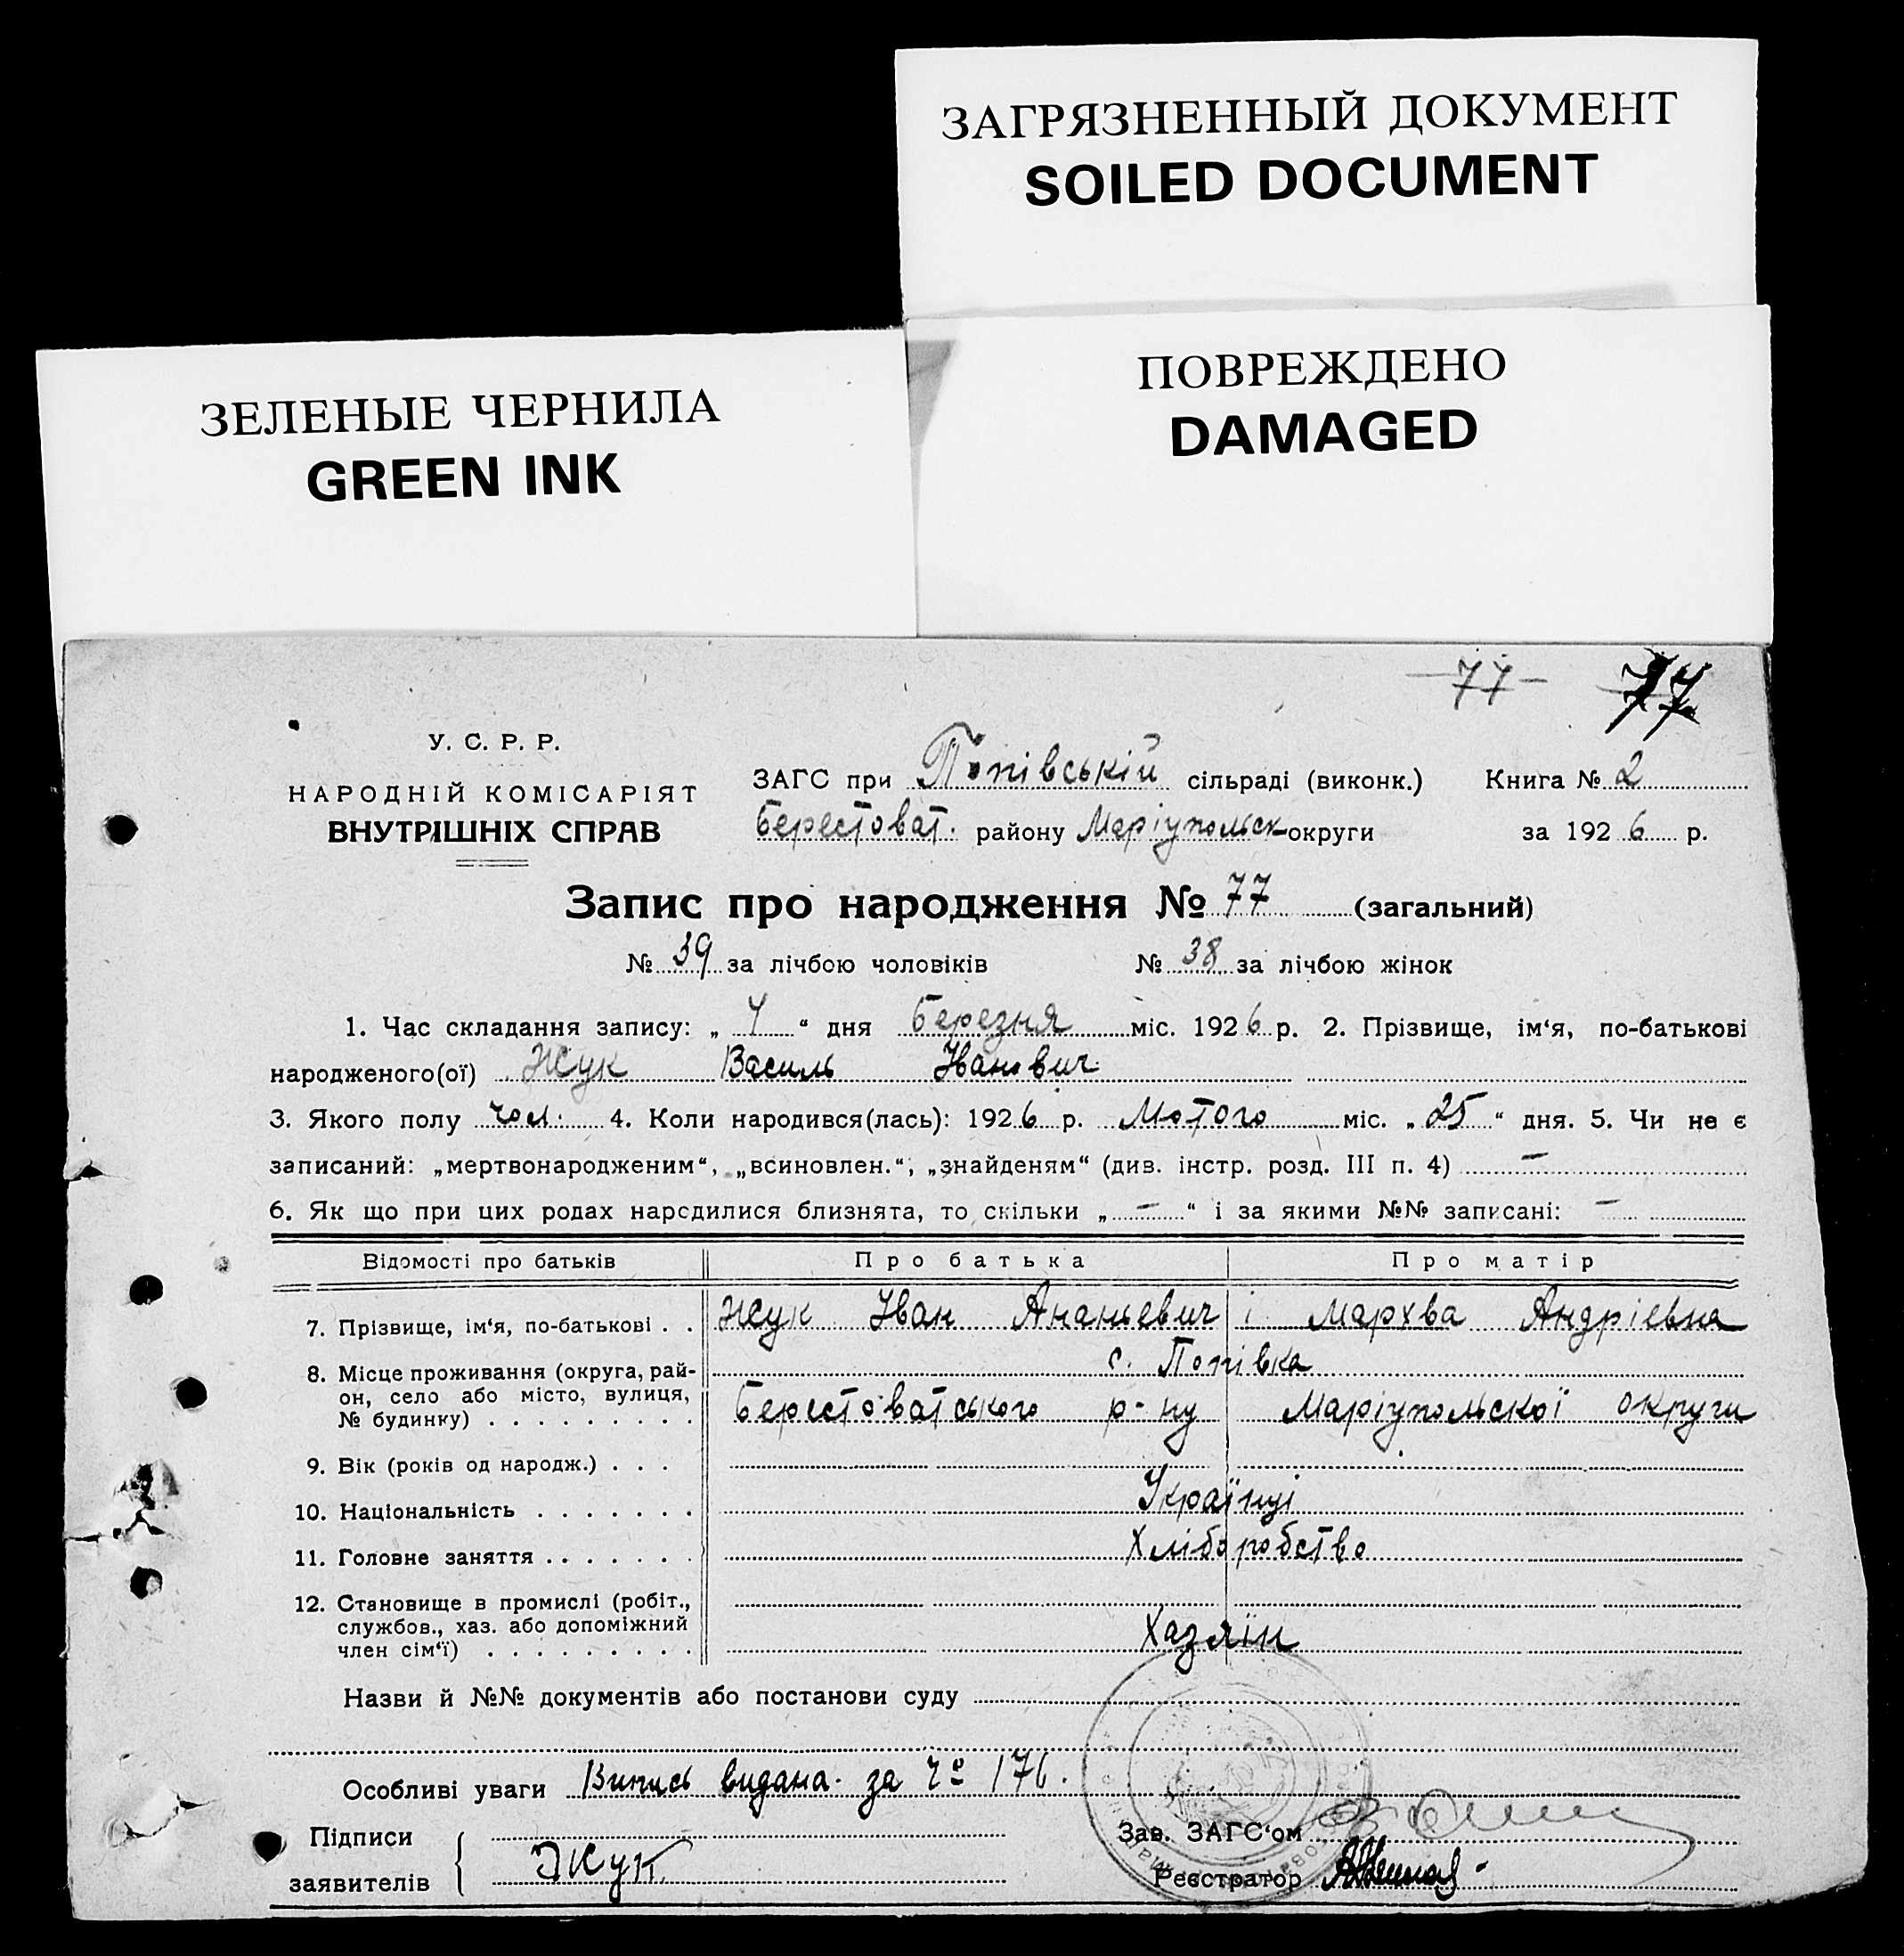 ЗАГРЯЗНЕННЫЙ ДОКУМЕНТ
SOILED DOCUMENT
ЗЕЛЕНЫЕ ЧЕРНИЛА
GREEN INK
ПОВРЕЖДЕНО
DAMAGED
77 77
У. С. Р. Р.
НАРОДНІЙ КОМІСАРІЯТ
ВНУТРІШНІХ СПРАВ
ЗАГС при Попівській сільраді (виконк.) Книга № 2
Берестоват. району Маріупольск округи за 1926 р.
Запис про народження № 77 (загальний)
№ 39 за лічбою чоловіків № 38 за лічбою жінок
1. Час складання запису: „ 4 “ дня Березня міс. 1926 р. 2. Прізвище, ім‘я, по-батькові
народженого(ої) Жук Василь Іванович
3. Якого полу чол. 4. Коли народився(лась): 1926 р. Лютого міс. „ 25 “ дня. 5. Чи не є
записаний: „мертвонародженим“, „всиновлен.“, „знайденям“ (див. інстр. розд. III п. 4) –
6. Як що при цих родах народилися близнята, то скільки „ – “ і за якими №№ записані: –
Відомості про батьків Про батька Про матір
7. Прізвище, ім‘я, по-батькові . . Жук Іван Ананьевич і Мархва Андріевна
8. Місце проживання (округа, рай- с. Попівка
он, село або місто, вулиця,
№ будинку) . . . . . . . . . Берестоватського р-ну Маріупольскої округи
9. Вік (років од народж.) . . .
10. Національність . . . . . . . Українці
11. Головне заняття . . . . . . . Хліборобство
12. Становище в промислі (робіт.,
службов., хаз. або допоміжний
член сім‘ї) . . . . . . . . . Хазяїн
Назви й №№ документів або постанови суду
Особливі уваги Випись видана. за Чº 176.
Підписи
заявителів Жук
Зав. ЗАГС‘ом
Реєстратор